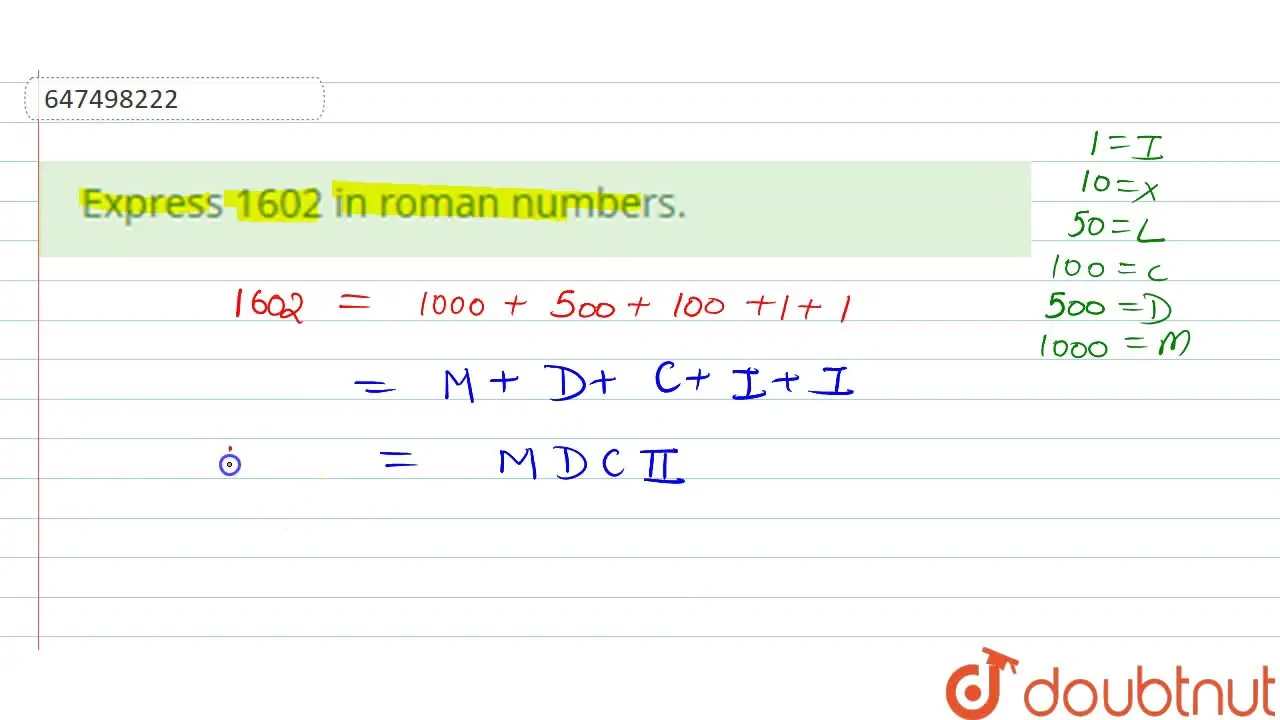 647498222
Express 1602 in roman numbers.
1602 = 1000 + 500 + 100 + 1 + 1
= M + D + C + I + I
= M D C II
1 = I
10 = X
50 = L
100 = C
500 = D
1000 = M
doubtnut